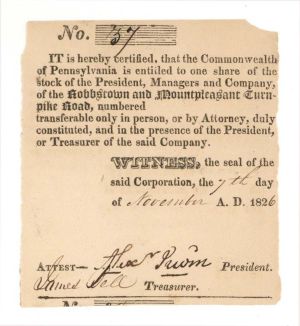 No. 37
IT is hereby certified, that the Commonwealth
of Pennsylvania is entitled to one share of the
stock of the President, Managers and Company,
of the Robbstown and Mountpleasant Turn-
pike Road, numbered
transferable only in person, or by Attorney, duly
constituted, and in the presence of the President,
or Treasurer of the said Company.
WITNESS, the seal of the
said Corporation, the 7th day
of November A. D. 1826
ATTEST— President.
James Treasurer.